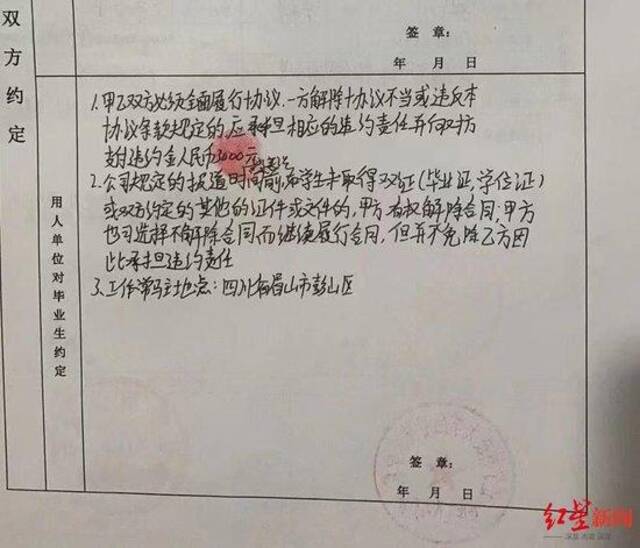 签章：
年 月 日
双方约定
用人单位对毕业生约定
1.甲乙双方必须全面履行协议.一方解除协议不当或违反本
协议条款规定的,应承担相应的违约责任并向对方
支付违约金人民币3000元
2.公司规定的报道时间前,如学生未取得双证(毕业证,学位证)
或双方约定的其他的证件或文件的,甲方有权解除合同;甲方
也可选择不解除合同而继续履行合同,但并不免除乙方因
此承担违约责任
3.工作常驻地点:四川省眉山市彭山区
签章：
年 月 日
红星新闻